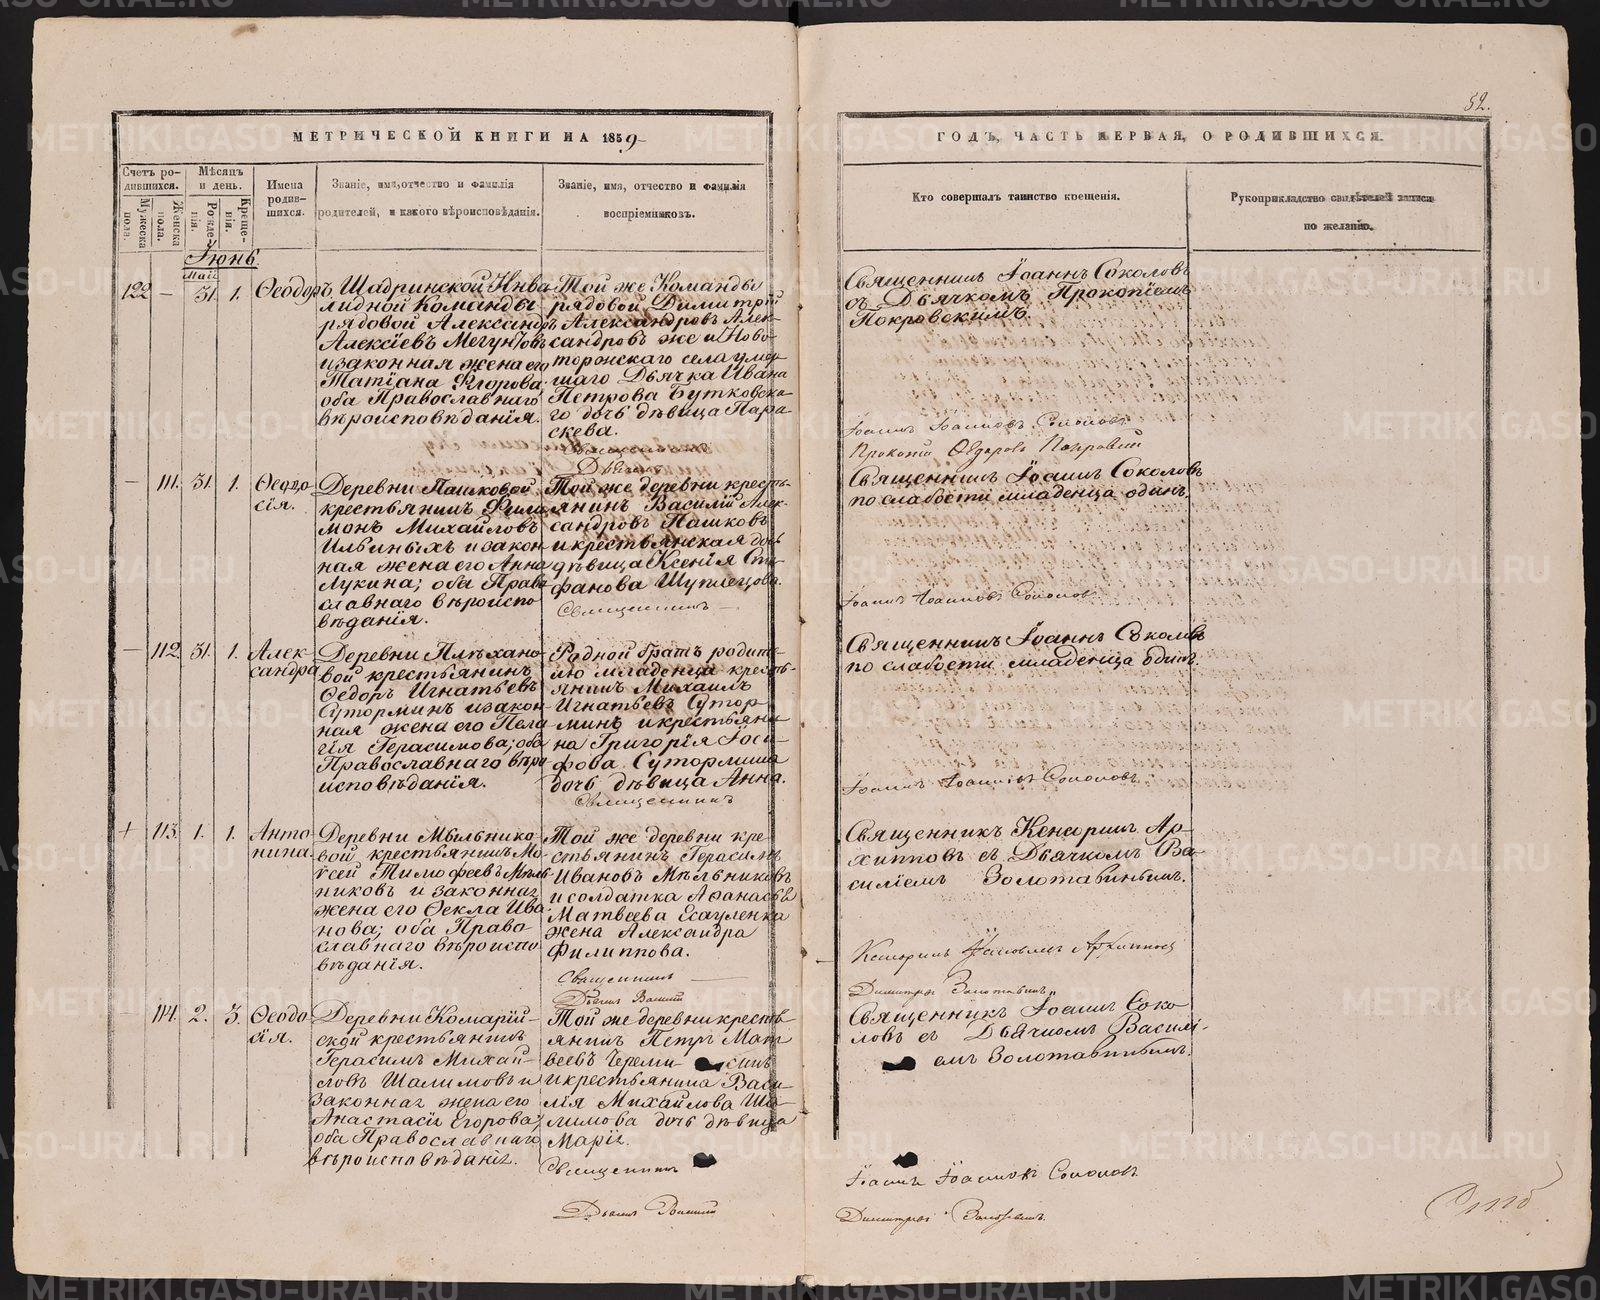 52.
МЕТРИЧЕСКОЙ КНИГИ НА 1859
ГОДЪ, ЧАСТЬ ПЕРВАЯ, О РОДИВШИХСЯ.
Счетъ ро-
дившихся.
Мужеска
пола.
Женска
пола.
Мѣсяцъ
и день.
Рожде-
нія.
Креще-
нія.
Имена
родив-
шихся.
Званіе, имя, отчество и фамилія
родителей, и какого вѣроисповѣданія.
Званіе, имя, отчество и фамилія
воспріемниковъ.
Кто совершалъ таинство крещенія.
Рукоприкладство свидѣтелей записи
по желанію.
Іюнь.
Май
122 — 31. 1. Ѳеодоръ.
Шадринской Инва-
лидной Команды
рядовой Александръ
Алексіевъ
и законная жена его
Татіана Егорова;
оба Православнаго
вѣроисповѣданія.
Той же Команды
рядовой Димитрій
Александровъ Алек-
сандровъ же и Ново-
торжскаго села умер-
шаго Дьячка Ивана
Петрова Бутковска-
го дочь дѣвица Пара-
скева.
Священникъ
Дьячекъ
Священникъ Іоаннъ Соколовъ
съ Дьячкомъ Прокопіемъ
Покровскимъ.
Іоаннъ Іоанновъ Соколовъ
Прокопій Ѳедоровъ Покровскій
— 111. 31. 1. Ѳеодо-
сія.
Деревни Пашковой
крестьянинъ Фила-
монъ Михайловъ
Ильиныхъ и закон-
ная жена его Анна
Лукина; оба Право-
славнаго вѣроиспо-
вѣданія.
Той же деревни кресть-
янинъ Василій Алек-
сандровъ Пашковъ
и крестьянская дочь
дѣвица Ксенія Сте-
фанова Шуплецова.
Священникъ
Священникъ Іоаннъ Соколовъ
по слабости младенца одинъ.
Іоаннъ Іоанновъ Соколовъ
— 112 31. 1. Алек-
сандра
Деревни Плѣхано-
вой крестьянинъ
Ѳедоръ Игнатьевъ
Суторминъ и закон-
ная жена его Пела-
гія Герасимова; оба
Православнаго вѣро-
исповѣданія.
Родной братъ родите-
лю младенца кресть-
янинъ Михаилъ
Игнатьевъ Сутор-
минъ и крестьяни-
на Григорія Іоси-
фова Сутормина
дочь дѣвица Анна.
Священникъ
Священникъ Іоаннъ Соколовъ
по слабости младенца одинъ.
Іоаннъ Іоанновъ Соколовъ
+ 113. 1. 1. Анто-
нина.
Деревни Мѣльнико-
вой крестьянинъ Мо-
ѵсей Тимофеевъ Мѣль-
никовъ и законная
жена его Ѳекла Ива-
нова; оба Право-
славнаго вѣроиспо-
вѣданія.
Той же деревни кре-
стьянинъ Герасимъ
Ивановъ Мѣльниковъ
и солдатка Афанасья
Матвеева Есауленка
жена Александра
Филиппова.
Священникъ
Дьячекъ Василій
Священникъ Кенсоринъ Ар-
хипповъ съ Дьячкомъ Ва-
силіемъ Золотавинымъ.
Кенсоринъ Архиповъ
Димитріевъ Золотавинъ
114. 2. 3. Ѳеодо-
сія.
Деревни Комарій-
ской крестьянинъ
Герасимъ Михай-
ловъ Шалимовъ и
законная жена его
Анастасія Егорова;
оба Православнаго
вѣроисповѣданія.
Той же деревни кресть-
янинъ Петръ Мат-
веевъ Череми- синъ
и крестьянина Васи-
лія Михайлова Ша-
лимова дочь дѣвица
Марія.
Священникъ
Дьячекъ Василій
Священникъ Іоаннъ Соко-
ловъ съ Дьячкомъ Василі-
емъ Золотавинымъ.
Іоаннъ Іоанновъ Соколовъ
Димитріевъ Золотавинъ.
METRIKI.GASO-URAL.RU